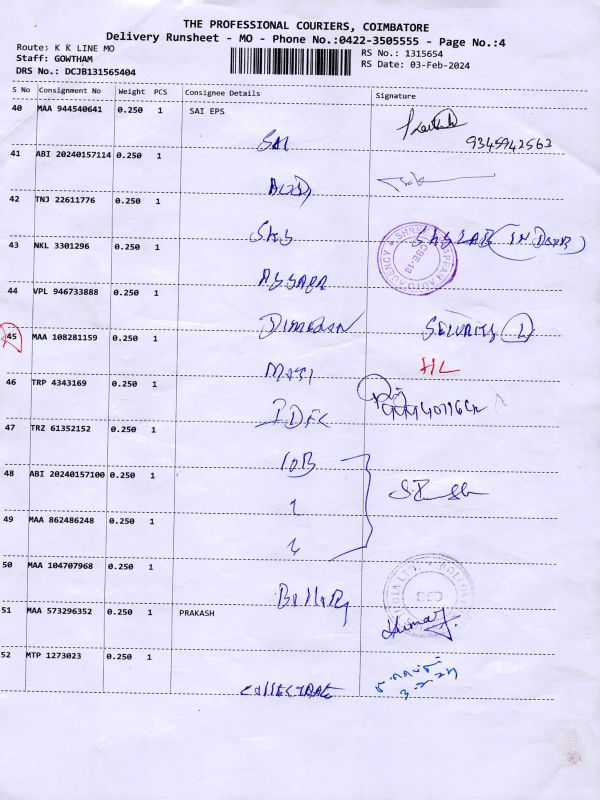 THE PROFESSIONAL COURIERS, COIMBATORE
Delivery Runsheet - MO - Phone No.:0422-3505555 - Page No.:4
Route: K K LINE MO
Staff: GOWTHAM
DRS No.: DCJB131565404
RS No.: 1315654
RS Date: 03-Feb-2024
S No Consignment No Weight PCS Consignee Details Signature
40 MAA 944540641 0.250 1 SAI EPS
SAI
9345942563
41 ABI 20240157114 0.250 1
42 TNJ 22611776 0.250 1
SKS
43 NKL 3301296 0.250 1
44 VPL 946733888 0.250 1
SECURITY
45 MAA 108281159 0.250 1
HL
46 TRP 4343169 0.250 1
IDFC
47 TRZ 61352152 0.250 1
IOB
48 ABI 20240157100 0.250 1
49 MAA 862486248 0.250 1
50 MAA 104707968 0.250 1
51 MAA 573296352 0.250 1 PRAKASH
52 MTP 1273023 0.250 1
COLLECTRATE
3.2.24